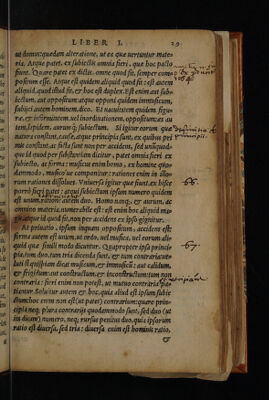 LIBER I. 29
ut homo: quædam alteratione, ut ea quæ vertuntur mate-
ria. Atque patet, ex subiectis omnia fieri, quæ hoc pacto
fiunt. Quare patet ex dictis, omne quod fit, semper compo-
positum esse. Atque est quidem aliquid quod fit: est autem
aliquid, quod illud fit, & hoc est duplex. Est enim aut sub-
iectum, aut oppositum: atque opponi quidem immusicum,
subijci autem hominem, dico. Et inconcinnitatem quidem figu-
ræ, & informitatem, vel inordinationem, oppositum: æs au-
tem, lapidem, aurum, subiectum. Si igitur eorum quæ
natura constant, causæ, atque principia sunt, ex quibus pri-
mis constant, ac facta sunt non per accidens, sed unūquod-
que id quod per substantiam dicitur, patet omnia fieri ex
subiecto, & forma: musicus enim homo, ex homine quo-
dammodo, musicoque componitur: rationes enim in illo-
rum rationes dissolves. Universa igitur quæ fiunt, ex hisce
porrò fieri patet: atque subiectum ipsum numero quidem
est unum, ratione autem duo. Homo namq, & aurum, ac
omnino materia, numerabile est: est enim hoc aliquid ma-
gis, atque id quod fit, non per accidens ex ipso gignitur.
At privatio, ipsum inquam oppositum, accidens est:
forma autem est unum, ut ordo, vel musica, vel eorum ali-
quid quæ simili modo dicuntur. Quapropter ipsa princi-
pia, tum duo, tum tria dicenda sunt, & tum contraria, ve-
luti si quispiam dicat musicum, & immusicū: aut calidum,
& frigidum: aut constructum, & inconstructum: tum non
contraria: fieri enim non potest, ut mutuo contraria pa-
tiantur. Solvitur autem & hoc, quia aliud est ipsum subie-
ctum: hoc enim non est (ut patet) contrarium: quare prin-
cipia neq, plura contrarijs quodammodo sunt, sed duo (ut
ita dicam) numero, neq, rursus penitus duo, quia ipsorum
ratio est diversa, sed tria: diversa enim est hominis ratio,
&
66.
67.